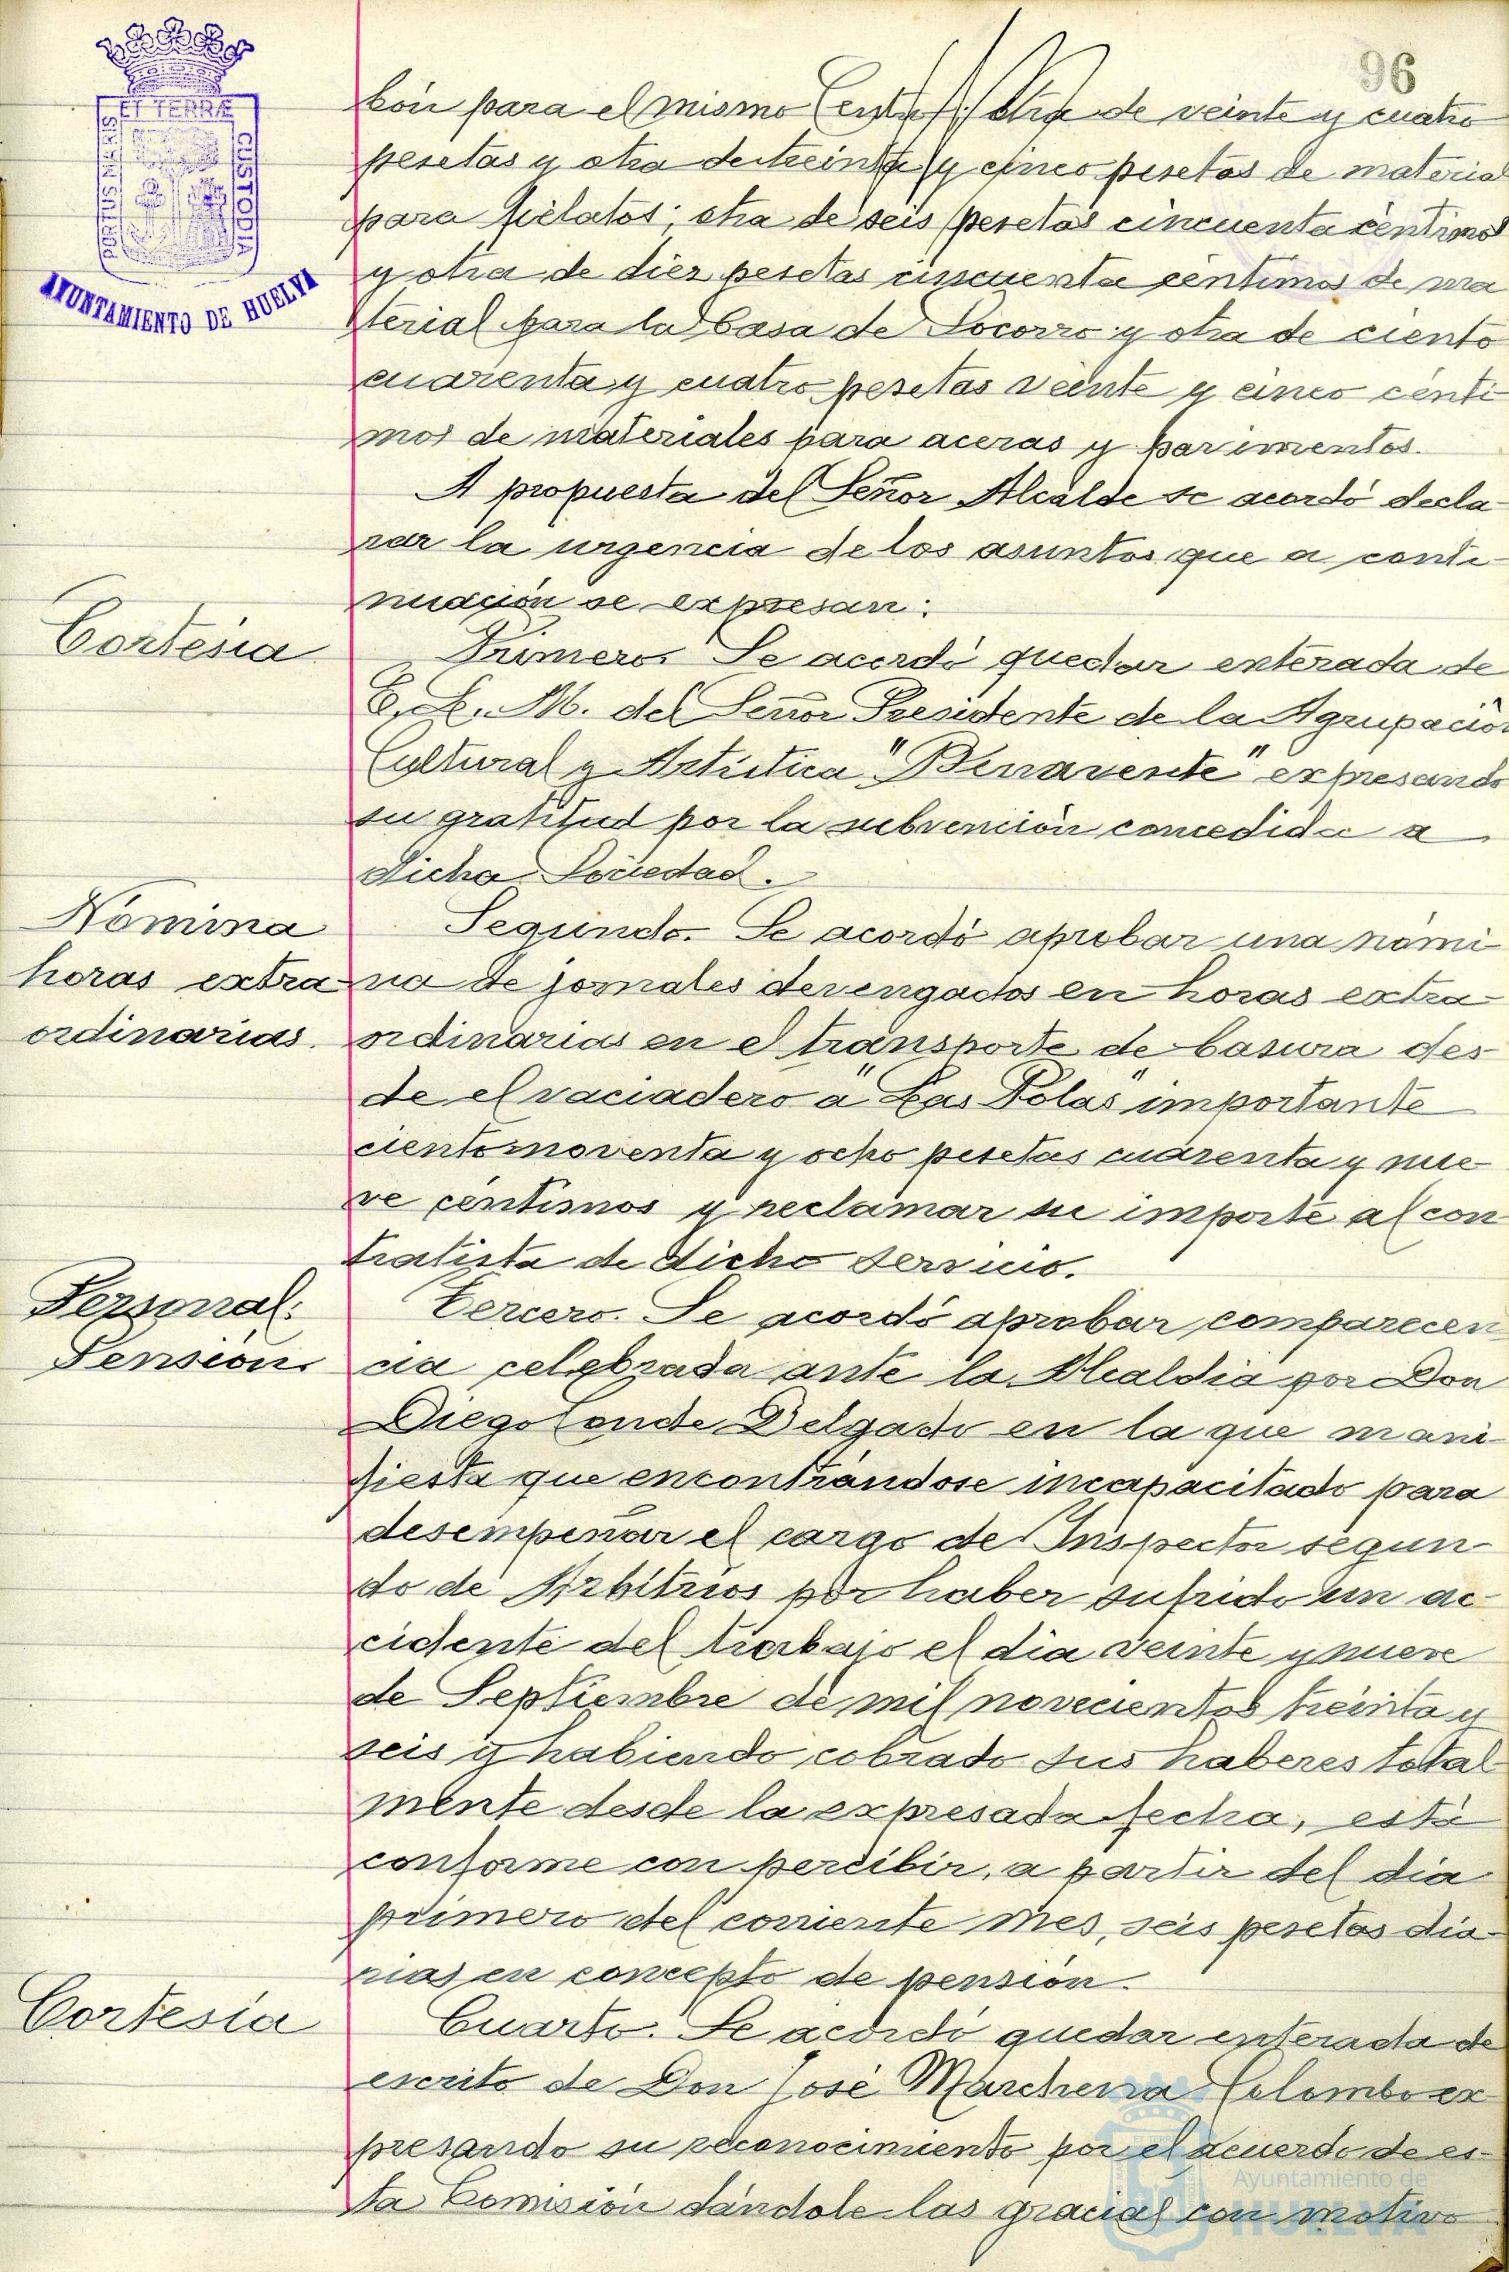 96
PORTUS MARIS
ET TERRÆ
CUSTODIA
AYUNTAMIENTO DE HUELVA
bón para el mismo Centro; otra de veinte y cuatro
pesetas y otra de treinta y cinco pesetas de material
para fielatos; otra de seis pesetas cincuenta céntimos
y otra de diez pesetas cincuenta céntimos de ma
terial para la Casa de Socorro y otra de ciento
cuarenta y cuatro pesetas veinte y cinco cénti-
mos de materiales para aceras y pavimentos.
A propuesta del Señor Alcalde se acordó decla-
rar la urgencia de los asuntos que a conti-
nuación se expresan:
Cortesia
Primero. Se acordó quedar enterada de
B. L. M. del Señor Presidente de la Agrupación
Cultural y Artística "Benavente" expresando
su gratitud por la subvención concedida a
dicha Sociedad.
Nómina
horas extra
ordinarias.
Segundo. Se acordó aprobar una nómi
na de jornales devengados en horas extra-
ordinarias en el transporte de basura des-
de el vaciadero a "Las Polas" importante
ciento noventa y ocho pesetas cuarenta y nue
ve céntimos y reclamar su importe al con
tratista de dicho servicio.
Personal:
Pensión.
Tercero. Se acordó aprobar comparecen
cia celebrada ante la Alcaldia por Don
Diego Conde Delgado en la que mani-
fiesta que encontrándose incapacitado para
desempeñar el cargo de Inspector segun-
do de Arbitrios por haber sufrido un ac-
cidente del trabajo el dia veinte y nueve
de Septiembre de mil novecientos treinta y
seis y habiendo cobrado sus haberes total-
mente desde la expresada fecha, está
conforme con percibir, a partir del dia
primero del corriente mes, seis pesetas dia-
rias en concepto de pensión.
Cortesía
Cuarto. Se acordó quedar enterada de
escrito de Don José Marchena Colombo ex
presando su reconocimiento por el acuerdo de es-
ta Comisión dándole las gracias con motivo
Ayuntamiento de
HUELVA